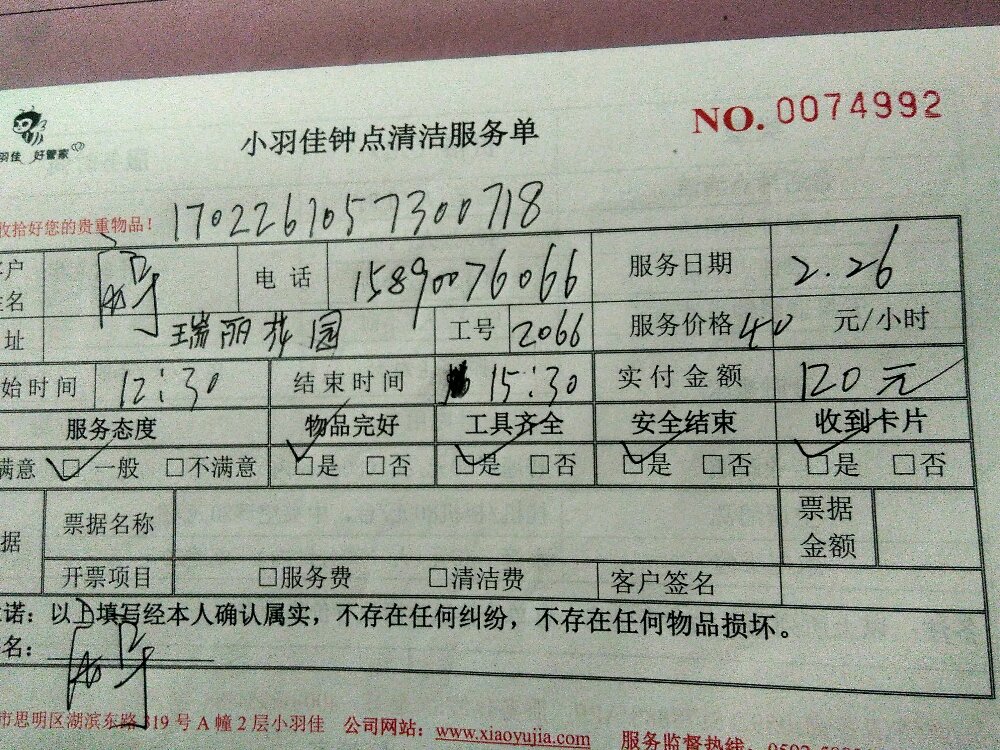 小羽佳钟点清洁服务单 NO. 0074992
羽佳 好管家
收拾好您的贵重物品! 1702261057300718
客户姓名 电话 15890076066 服务日期 2.26
址 瑞丽花园 工号 2066 服务价格 40 元/小时
始时间 12:30 结束时间 15:30 实付金额 120元
服务态度 物品完好 工具齐全 安全结束 收到卡片
满意 □一般 □不满意 □是 □否 □是 □否 □是 □否 □是 □否
据 票据名称 票据金额
开票项目 □服务费 □清洁费 客户签名
诺: 以上填写经本人确认属实,不存在任何纠纷,不存在任何物品损坏。
名:
市思明区湖滨东路319号A幢2层小羽佳 公司网站: www.xiaoyujia.com 服务监督热线: